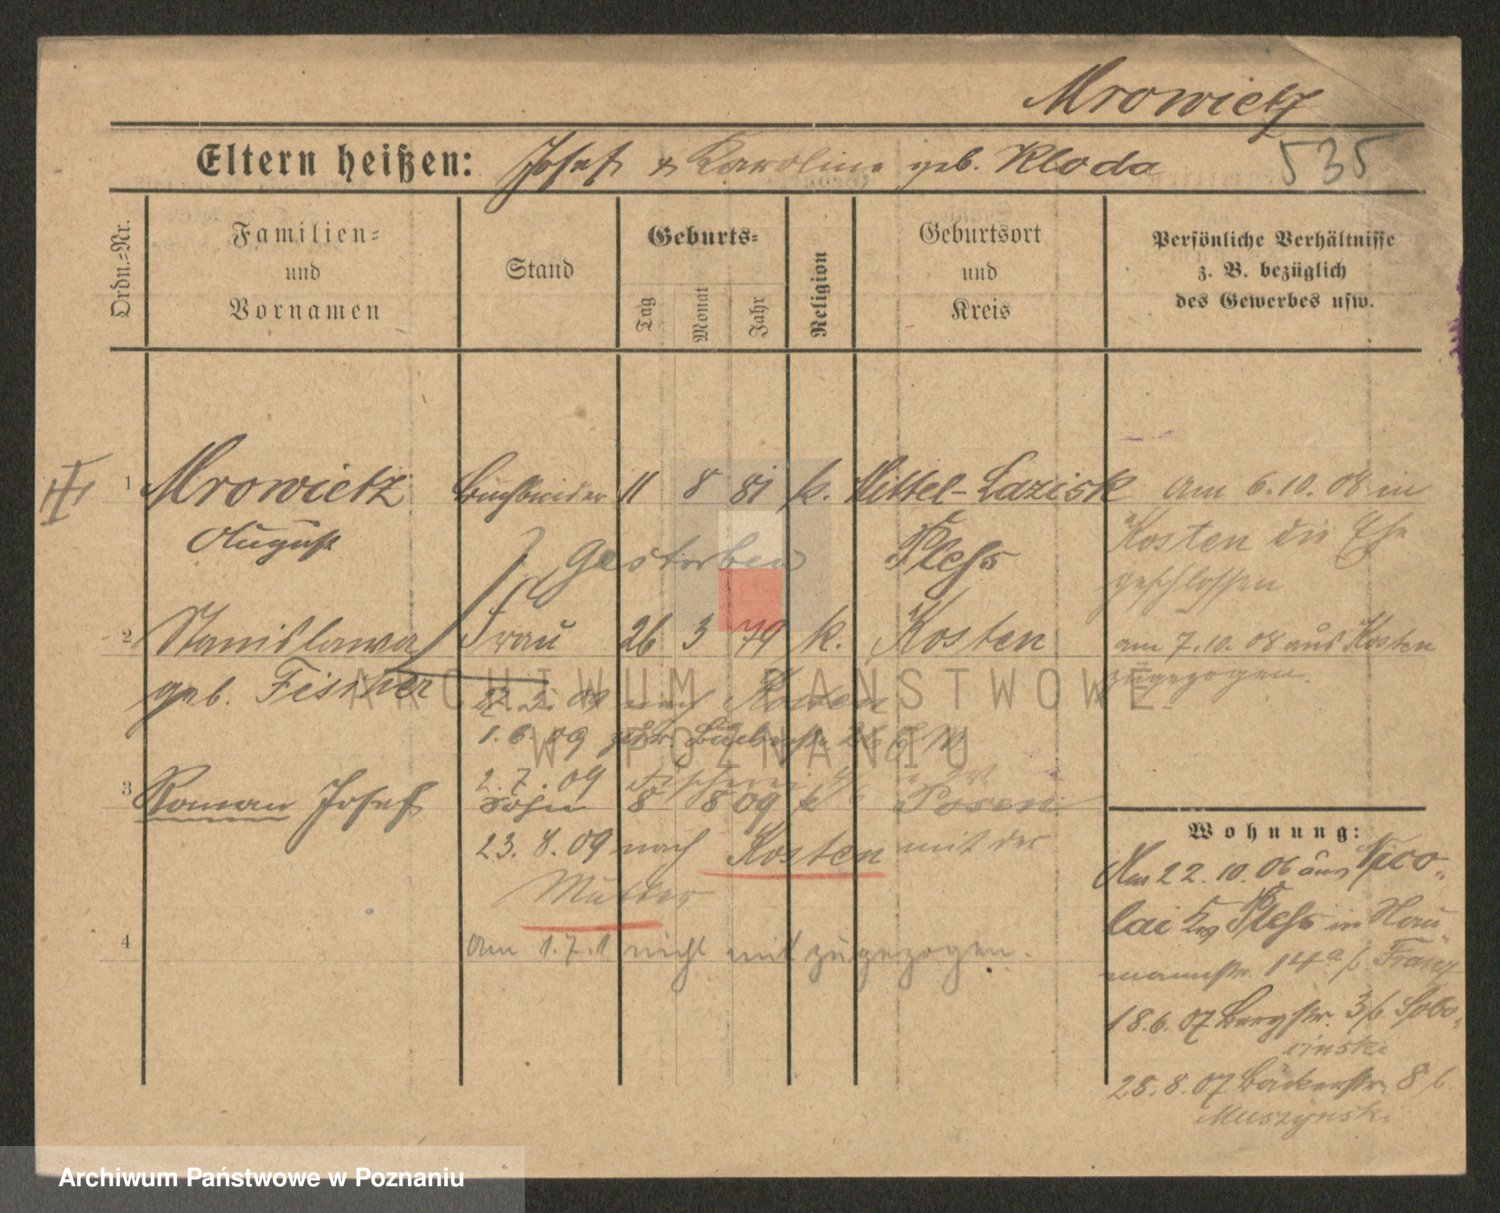 Mrowietz
Eltern heißen: Josef & Karoline geb. Kloda
535
Ordn.=Nr.
Familien=
und
Vornamen
Stand
Geburts=
Tag
Monat
Jahr
Religion
Geburtsort
und
Kreis
Persönliche Verhältnisse
z. B. bezüglich
des Gewerbes usw.
1 Mrowietz 11 8 81 k. Mittel-Lazisk
August Pless
gestorben
am 6.10.08 in
Kosten die Ehe
geschlossen
2 Stanislawa Frau 26 3 79 k. Kosten
geb. Fischer
am 7.10.08 aus Kosten
zugezogen.
09 nach Kosten
1.6.09
2.7.09
3 Roman Josef Sohn 8 8 09 k Posen
23.8.09 nach Kosten mit der
Mutter
4
am 1.7.1 nicht mit zugezogen.
Wohnung:
Am 22.10.06 aus Nico-
lai Pless in Nau-
mannstr. 14a b.
18.6.07 Bergstr. 3 b.
28.8.07 Bäckerstr. 8 b.
Muszynski
ARCHIWUM PAŃSTWOWE
W POZNANIU
Archiwum Państwowe w Poznaniu